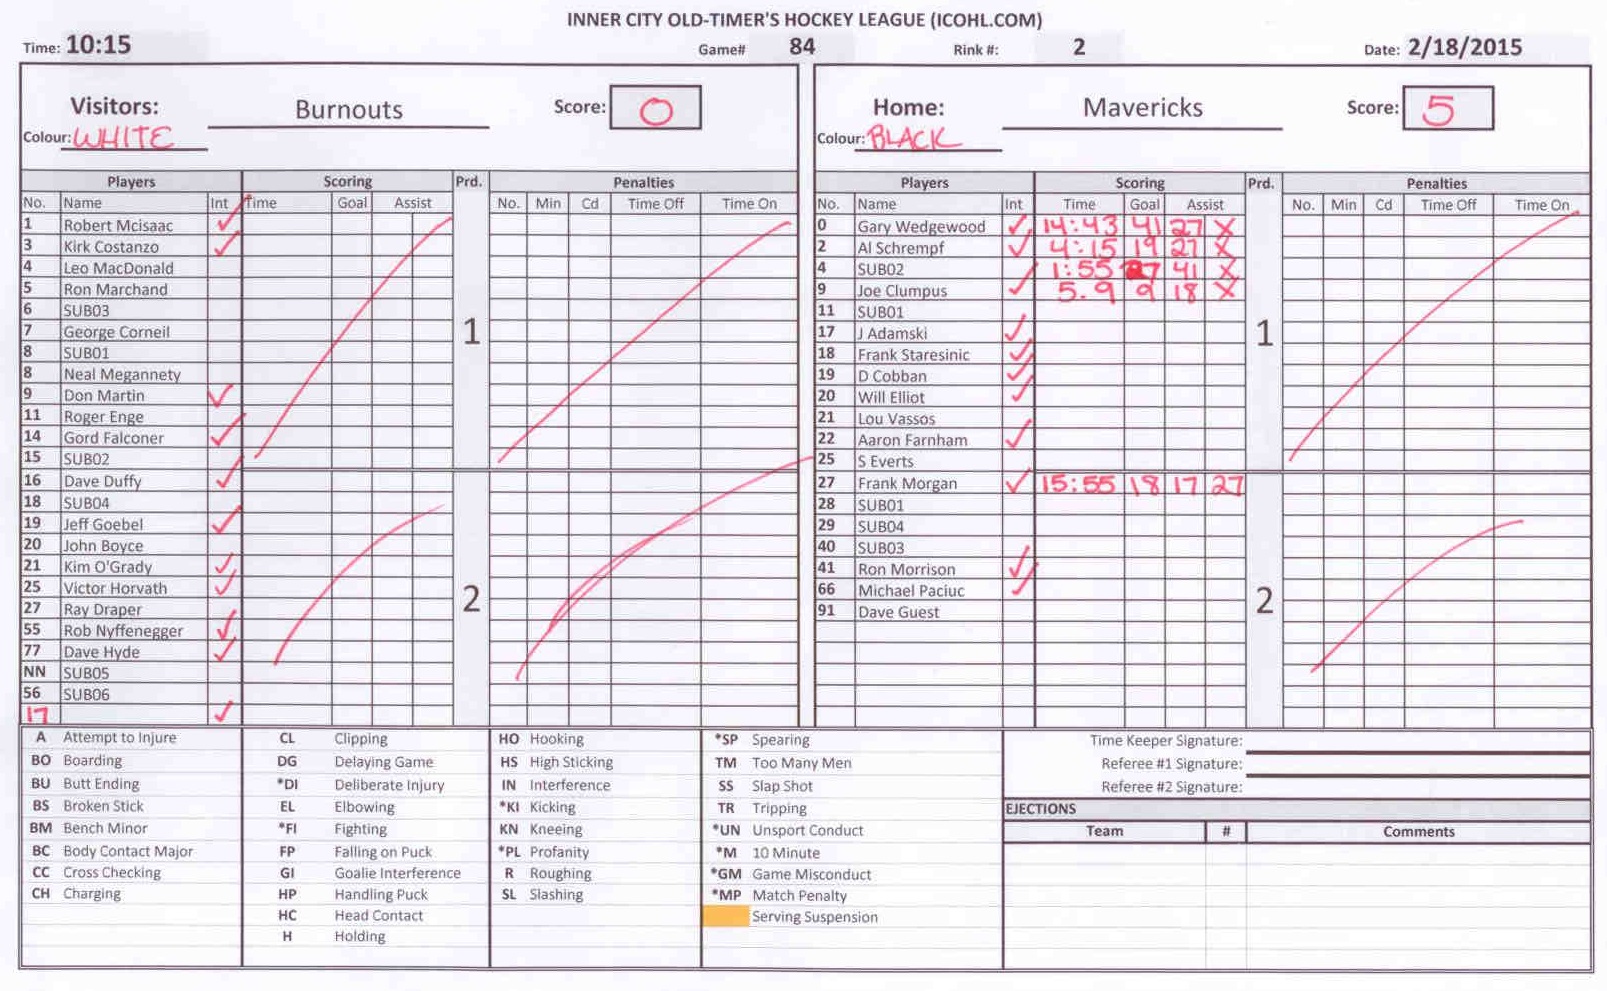 INNER CITY OLD-TIMER'S HOCKEY LEAGUE (ICOHL.COM)
Time: 10:15 Game# 84 Rink #: 2 Date: 2/18/2015
Visitors: Burnouts Score: 0
Colour: WHITE
Players Scoring Prd. Penalties
No. Name Int Time Goal Assist No. Min Cd Time Off Time On
1 Robert Mcisaac ✓
3 Kirk Costanzo ✓
4 Leo MacDonald
5 Ron Marchand
6 SUB03
7 George Corneil
1
8 SUB01
8 Neal Megannety
9 Don Martin ✓
11 Roger Enge
14 Gord Falconer ✓
15 SUB02
16 Dave Duffy ✓
18 SUB04
19 Jeff Goebel ✓
20 John Boyce
21 Kim O'Grady ✓
25 Victor Horvath ✓
2
27 Ray Draper
55 Rob Nyffenegger ✓
77 Dave Hyde ✓
NN SUB05
56 SUB06
17 ✓
Home: Mavericks Score: 5
Colour: BLACK
Players Scoring Prd. Penalties
No. Name Int Time Goal Assist No. Min Cd Time Off Time On
0 Gary Wedgewood ✓ 14:43 41 27 X
2 Al Schrempf ✓ 4:15 19 27 X
4 SUB02 ✓ 1:55 27 41 X
9 Joe Clumpus ✓ 5.9 9 18 X
11 SUB01
17 J Adamski ✓
1
18 Frank Staresinic ✓
19 D Cobban ✓
20 Will Elliot ✓
21 Lou Vassos
22 Aaron Farnham ✓
25 S Everts
27 Frank Morgan ✓ 15:55 18 17 27
28 SUB01
29 SUB04
40 SUB03
41 Ron Morrison ✓
66 Michael Paciuc ✓
2
91 Dave Guest
A Attempt to Injure
BO Boarding
BU Butt Ending
BS Broken Stick
BM Bench Minor
BC Body Contact Major
CC Cross Checking
CH Charging
CL Clipping
DG Delaying Game
*DI Deliberate Injury
EL Elbowing
*FI Fighting
FP Falling on Puck
GI Goalie Interference
HP Handling Puck
HC Head Contact
H Holding
HO Hooking
HS High Sticking
IN Interference
*KI Kicking
KN Kneeing
*PL Profanity
R Roughing
SL Slashing
*SP Spearing
TM Too Many Men
SS Slap Shot
TR Tripping
*UN Unsport Conduct
*M 10 Minute
*GM Game Misconduct
*MP Match Penalty
Serving Suspension
Time Keeper Signature:
Referee #1 Signature:
Referee #2 Signature:
EJECTIONS
Team # Comments